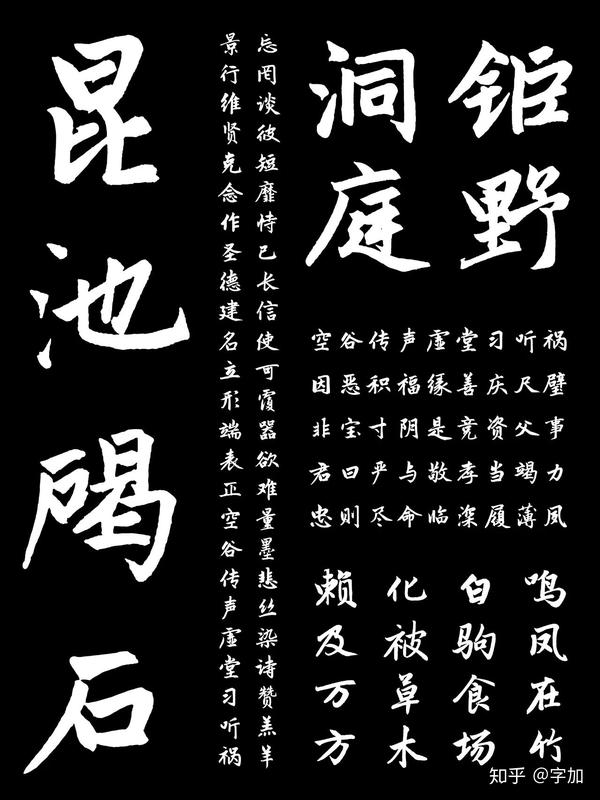 钜野
洞庭
空谷传声虚堂习听祸
因恶积福缘善庆尺璧
非宝寸阴是竞资父事
君曰严与敬孝当竭力
忠则尽命临深履薄夙
鸣凤在竹
白驹食场
化被草木
赖及万方
忘罔谈彼短靡恃己长信使可覆器欲难量墨悲丝染诗赞羔羊
景行维贤克念作圣德建名立形端表正空谷传声虚堂习听祸
昆池碣石
知乎 @字加